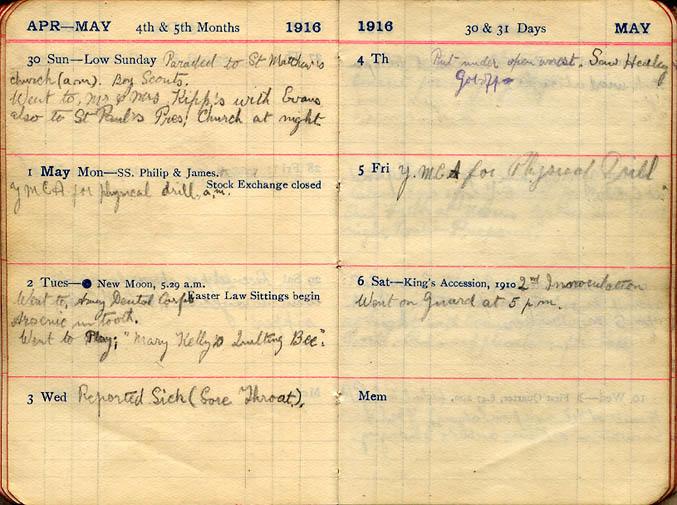 APR—MAY 4th & 5th Months 1916
30 Sun—Low Sunday Paraded to St Matthew's
church (a.m). Boy Scouts.
Went to, Mr & Mrs Kipp's with Evans
also to St Paul's Pres; Church at night
1 May Mon—SS. Philip & James.
Stock Exchange closed
Y M C A for physical drill, a.m.
2 Tues—● New Moon, 5.29 a.m.
Easter Law Sittings begin
Went to, Army Dental Corps
Arsenic in tooth.
Went to Play; "Mary Kelly's Quilting Bee".
3 Wed Reported Sick (Sore Throat).
1916 30 & 31 Days MAY
4 Th Put under open arrest. Saw Healey
Got off
5 Fri Y.M.C.A for Physical Drill
6 Sat—King's Accession, 1910 2nd Innoculation
Went on Guard at 5 p.m.
Mem